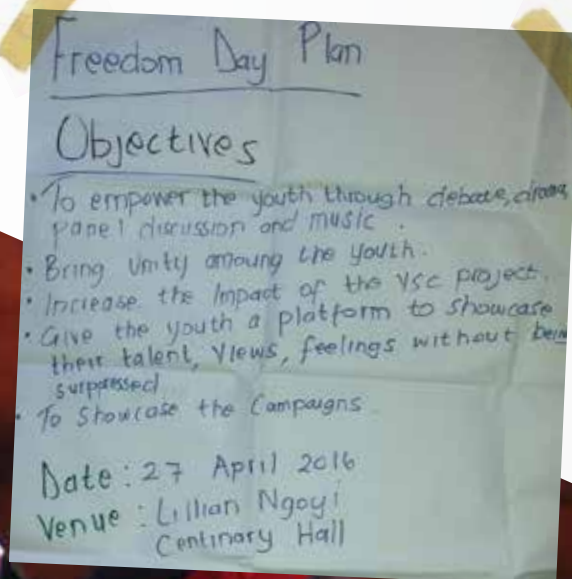 Freedom Day Plan
Objectives
• To empower the youth through debate, drama,
panel discussion and music.
• Bring Unity amoung the youth.
• Increase the Impact of the YSC project.
• Give the youth a platform to showcase
their talent, views, feelings without being
surpressed
• To Showcase the Campaigns
Date: 27 April 2016
Venue: Lillian Ngoyi
Centinary Hall